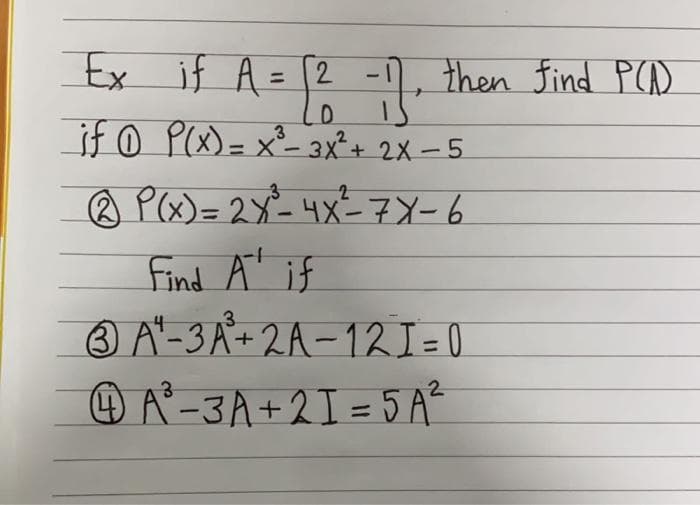 Ex if A = [2 -1
0 1], then find P(A)
if ① P(x) = x³ - 3x² + 2x - 5
② P(x) = 2x³ - 4x² - 7x - 6
Find A⁻¹ if
③ A⁴ - 3A³ + 2A - 12I = 0
④ A³ - 3A + 2I = 5A²